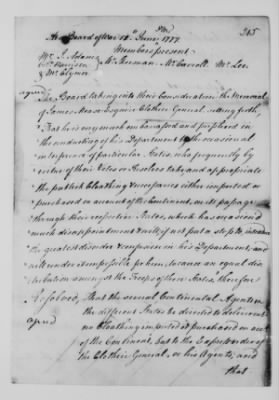 At a Board of War 18th June 1777 PM
365
Members present
Mr J. Adams Mr Sherman Mr Carroll Mr Lee
Mr Harrison
& Mr Clymer
agreed The Board taking into their Consideration the Memorial
of James Mease Esquire Clothier General, setting forth,
That he is very much embarrassed and perplexed in
the conducting of his Department by the occasional
interference of particular States, who frequently by
virtue of their Votes or Resolves take and appropriate
the publick Cloathing & Companies either imported or
purchased on account of the Continent, in its passage
through their respective States, which has occasioned
much disappointment & will if not put a stop to introduce
the greatest disorder & confusion in his Department, and
will render it impossible for him to make an equal dis-
tribution amongst the Troops of these States, therefore
Resolved, That the several Continental Agents in
agreed the different States be directed to deliver out
no Cloathing imported or purchased on acct
of the Continent, but to the Express order of
the Clothier General, or his Agents; and
that